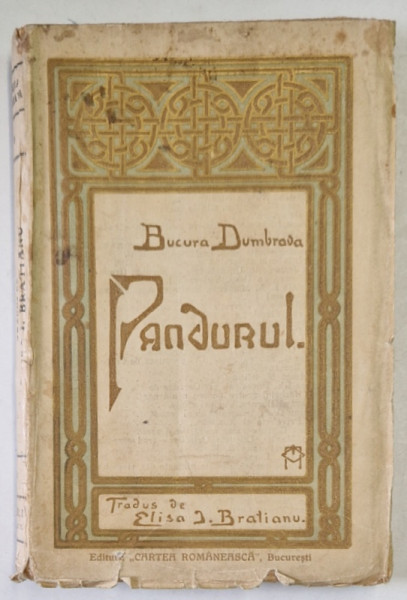 Bucura Dumbrava
Pandurul.
Tradus de
Elisa I. Bratianu.
Editura „CARTEA ROMÂNEASCĂ", Bucureşti
BRATIANU
LEI